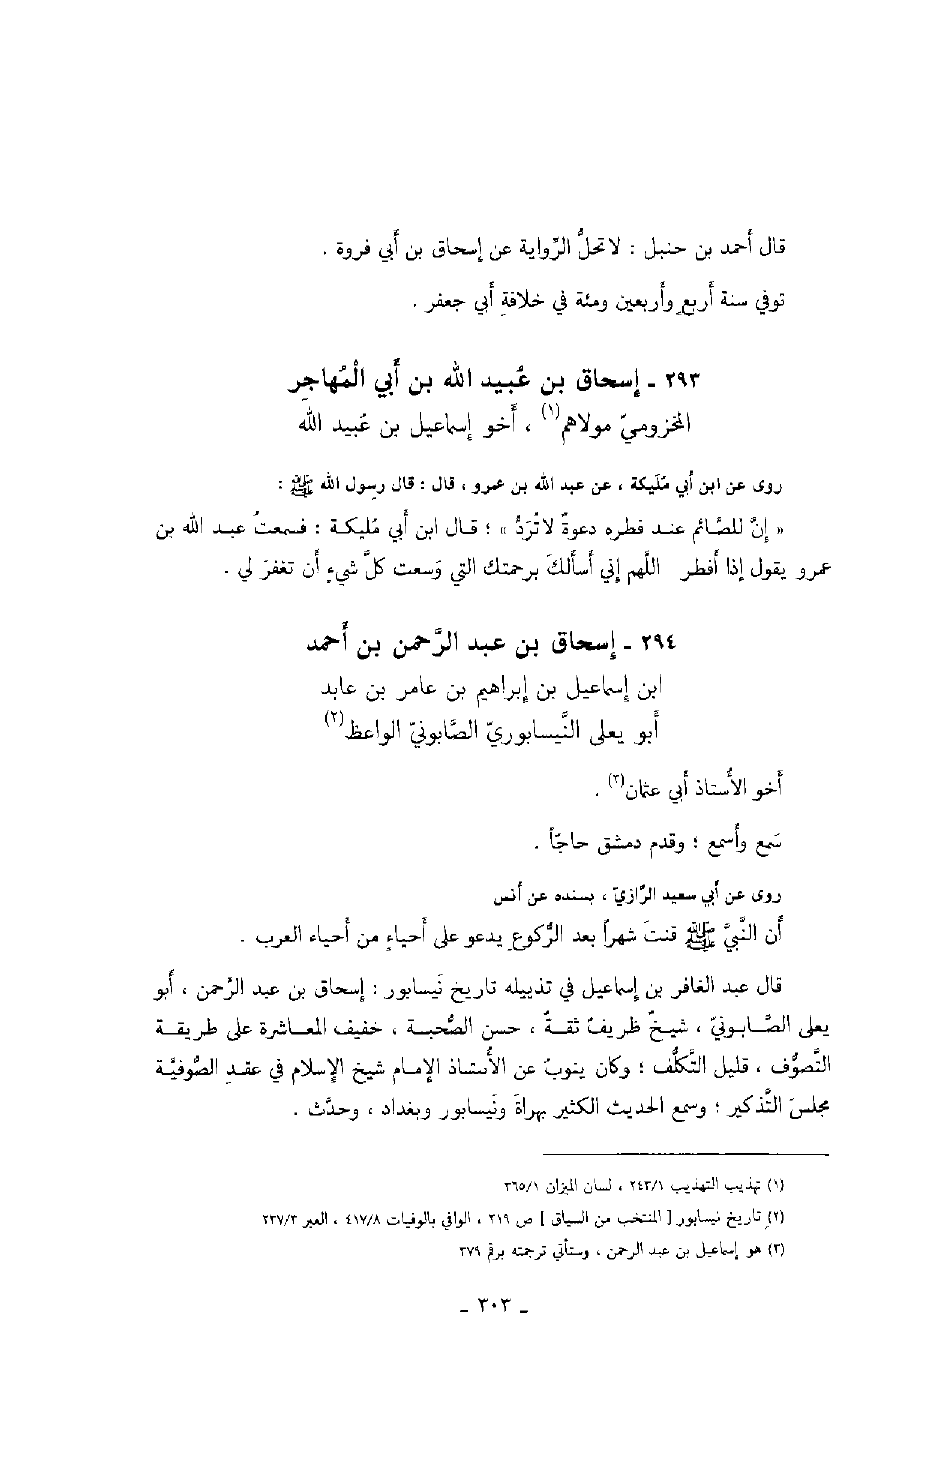 قال أحمد بن حنبل : لا تحلُّ الرِّواية عن إسحاق بن أبي فروة .
توفي سنة أربعٍ وأربعين ومئة في خلافةِ أبي جعفر .
٢٩٣ ـ إسحاق بن عُبيد الله بن أبي الْمُهاجِر
المخزوميّ مولاهم(١) ، أخو إسماعيل بن عُبيد الله
روى عن ابن أبي مُليكة ، عن عبد الله بن عمرو ، قال : قال رسول الله ﷺ :
« إنَّ للصَّائم عند فطره دعوةً لا تُرَدُّ » ؛ قال ابن أبي مُليكة : فسمعتُ عبد الله بن
عمرو يقول إذا أفطر اللَّهم إني أسألكَ برحمتك التي وَسعت كلَّ شيءٍ أن تغفرَ لي .
٢٩٤ ـ إسحاق بن عبد الرَّحمن بن أَحمد
ابن إسماعيل بن إبراهيم بن عامر بن عابد
أبو يعلى النَّيسابوريّ الصَّابونيّ الواعظ(٢)
أخو الأُستاذ أبي عثمان(٣) .
سَمع وأَسمع ؛ وقدم دمشق حاجّاً .
روى عن أبي سعيد الرَّازيّ ، بسنده عن أنس
أن النَّبيَّ ﷺ قنتَ شهراً بعد الرُّكوعِ يدعو على أحياءٍ من أحياء العرب .
قال عبد الغافر بن إسماعيل في تذييله تاريخ نَيسابور : إسحاق بن عبد الرَّحمن ، أبو
يعلى الصَّابونيّ ، شيخٌ ظريفٌ ثقةٌ ، حسن الصُّحبة ، خفيف المعاشرة على طريقة
التَّصوُّف ، قليل التَّكلُّف ؛ وكان ينوبُ عن الأستاذ الإمام شيخ الإسلام في عقدِ الصُّوفيَّة
مجلسَ التَّذكير ؛ وسمع الحديث الكثير بهراةَ ونَيسابور وبغداد ، وحدَّث .
(١) تهذيب التهذيب ٢٤٣/١ ، لسان الميزان ٣٦٥/١
(٢) تاريخ نيسابور [ المنتخب من السياق ] ص ٢١٩ ، الوافي بالوفيات ٤١٧/٨ ، العبر ٢٣٧/٣
(٣) هو إسماعيل بن عبد الرحمن ، وستأتي ترجمته برقم ٣٧٩
ـ ٣٠٣ ـ